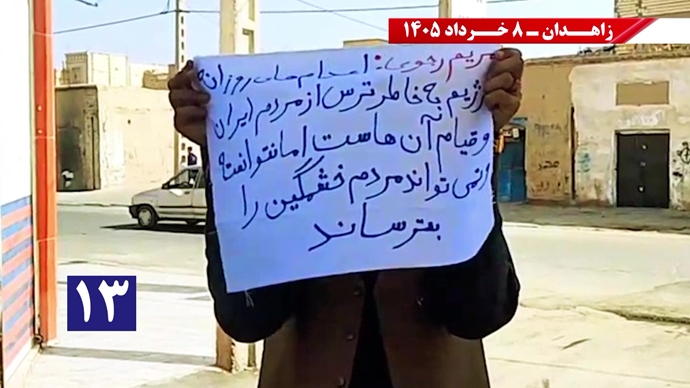 زاهدان ـ ۸ خرداد ۱۴۰۵
مریم رجوی: اعدام‌های روزانه
رژیم به خاطر ترس از مردم ایران
و قیام آن هاست اما نتوانسته
و نمی تواند مردم خشمگین را
بترساند
۱۳